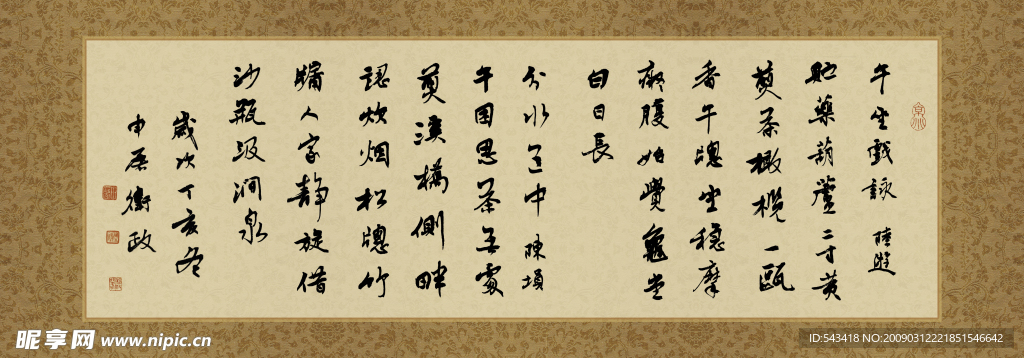 午坐戲詠 陸遊
貯藥葫蘆二寸黃
煑茶橄欖一甌
香午牕坐穩摩
痴腹始覺龜堂
白日長
分水道中 陳塤
午困思茶无處
煎溪橋側畔
認炊烟松牕竹
牖人家靜旋借
沙瓶汲澗泉
歲次丁亥冬
申屠衡政
昵享网 www.nipic.cn
ID:543418 NO:20090312221851546642